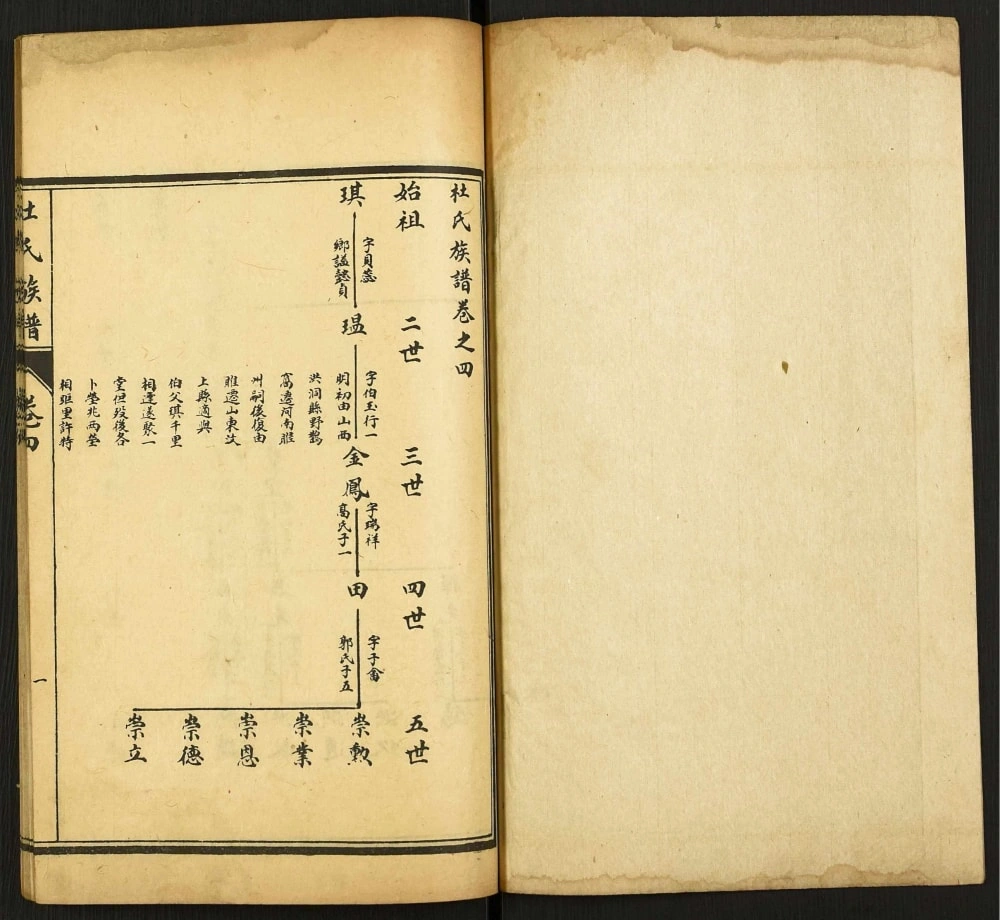 杜氏族譜卷之四
始祖
二世
三世
四世
五世
琪
字貝蕊
鄉謚懿貞
瑥
字伯玉行一
明初由山西
洪洞縣野鸛
窩遷河南睢
州嗣後復由
睢遷山東汶
上縣適與
伯父琪千里
相逢遂聚一
堂但歿後各
卜塋兆兩塋
相距里許特
金鳳
字瑞祥
高氏子一
田
字子畬
郭氏子五
崇勲
崇業
崇恩
崇德
崇立
杜氏族譜
卷四
一